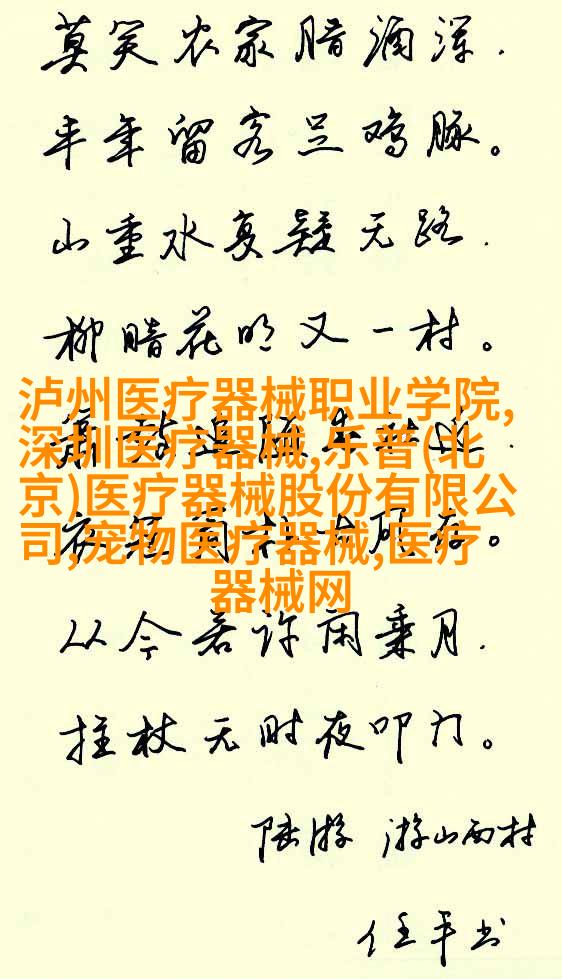 莫笑农家腊酒浑.
丰年留客足鸡豚。
山重水复疑无路.
柳暗花明又一村。
泸州医疗器械职业学院,
深圳医疗器械,乐普(北
京)医疗器械股份有限公
司,宠物医疗器械,医疗
器械网
从今若许闲乘月.
拄杖无时夜叩门。
陆游 游山西村
任平书